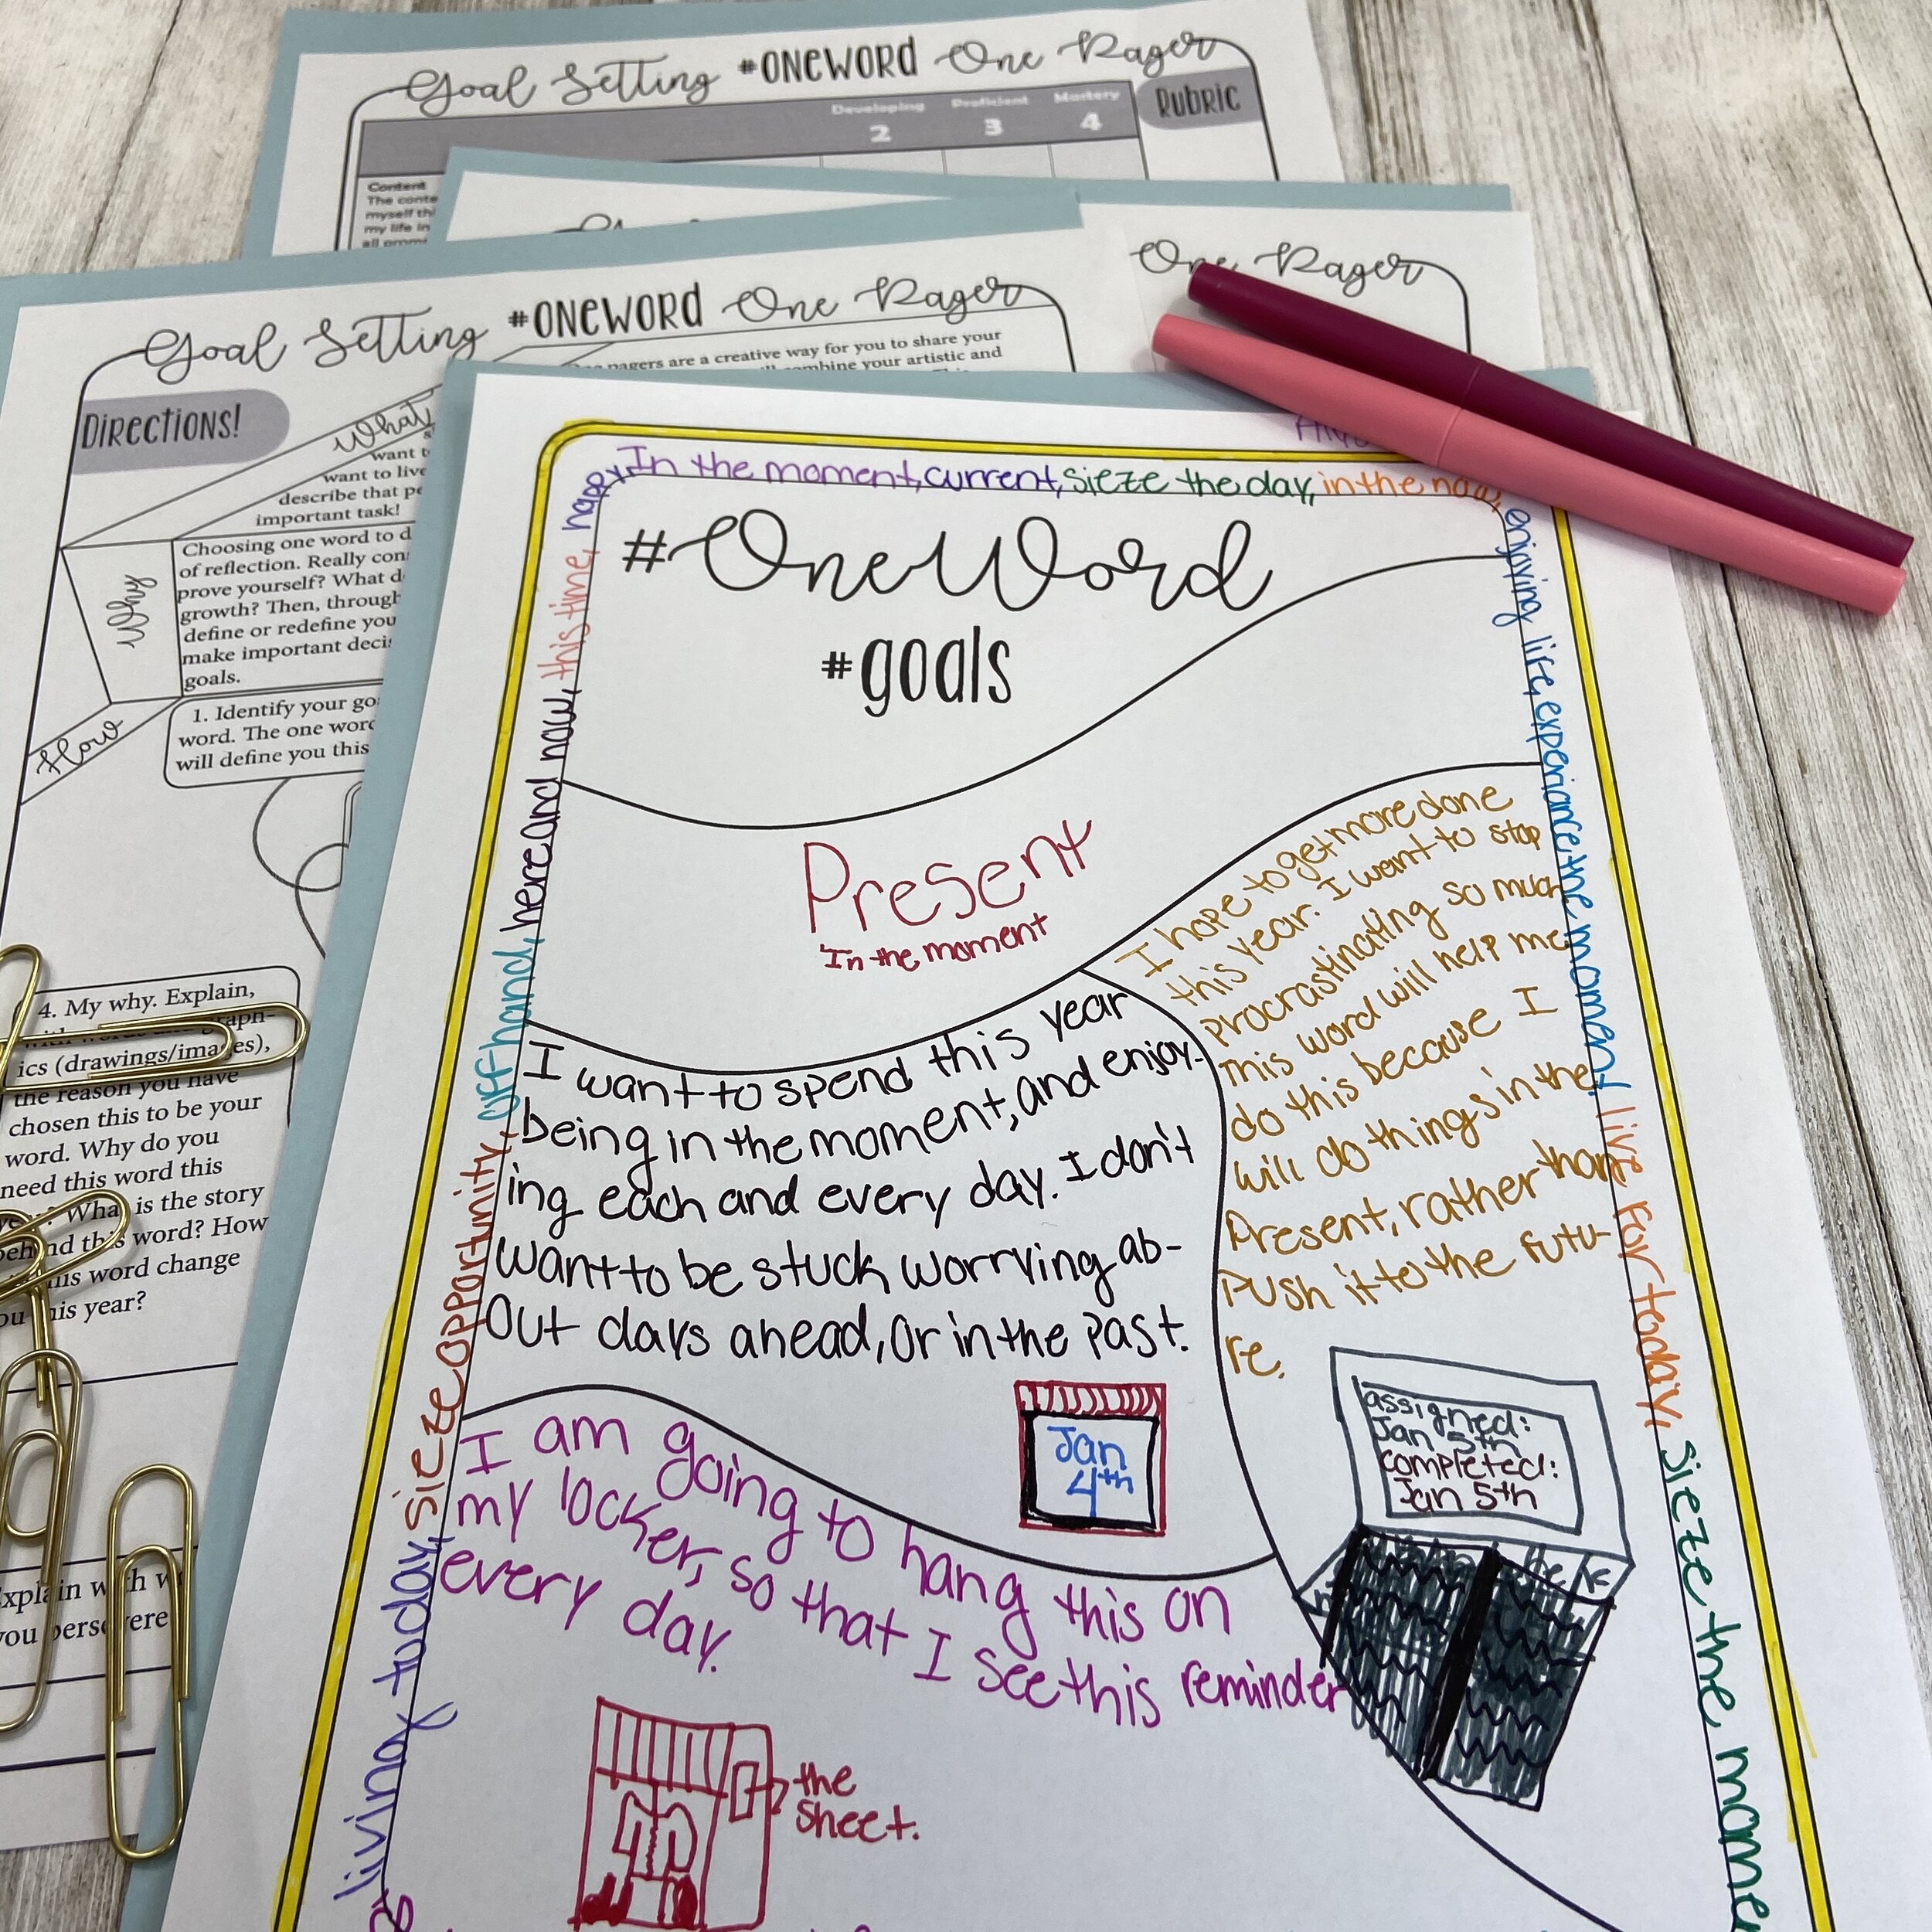 Goal Setting #ONEWORD One Pager
Developing Proficient Mastery Rubric
2 3 4
Content
The conte
myself thi
my life in
all prom
One Pager
Goal Setting #ONEWORD One Pager
pagers are a creative way for you to share your
combine your artistic and
Directions!
What
want t
want to live
describe that pe
important task!
Why
Choosing one word to d
of reflection. Really con
prove yourself? What d
growth? Then, through
define or redefine you
make important deci
goals.
How
1. Identify your go
word. The one word
will define you this
4. My why. Explain,
ics (drawings/images),
the reason you have
chosen this to be your
word. Why do you
need this word this
What is the story
behind this word? How
this word change
you this year?
Explain with w
you persevere
In the moment, current, sieze the day, in the now,
enjoying life, experiance the moment, live for today, sieze the mome
living today, sieze opportunity, offhand, here and now, this time, happy,
#OneWord
#goals
Present
In the moment
I want to spend this year
being in the moment, and enjoy-
ing each and every day. I don't
want to be stuck worrying ab-
out days ahead, or in the past.
Jan
4th
I hope to get more done
this year. I want to stop
procrastinating so much
This word will help me
do this because I
will do things in the
Present, rather than
Push it to the futu-
re.
assigned:
Jan 5th
completed:
Jan 5th
I am going to hang this on
my locker, so that I see this reminder
every day.
the
sheet.